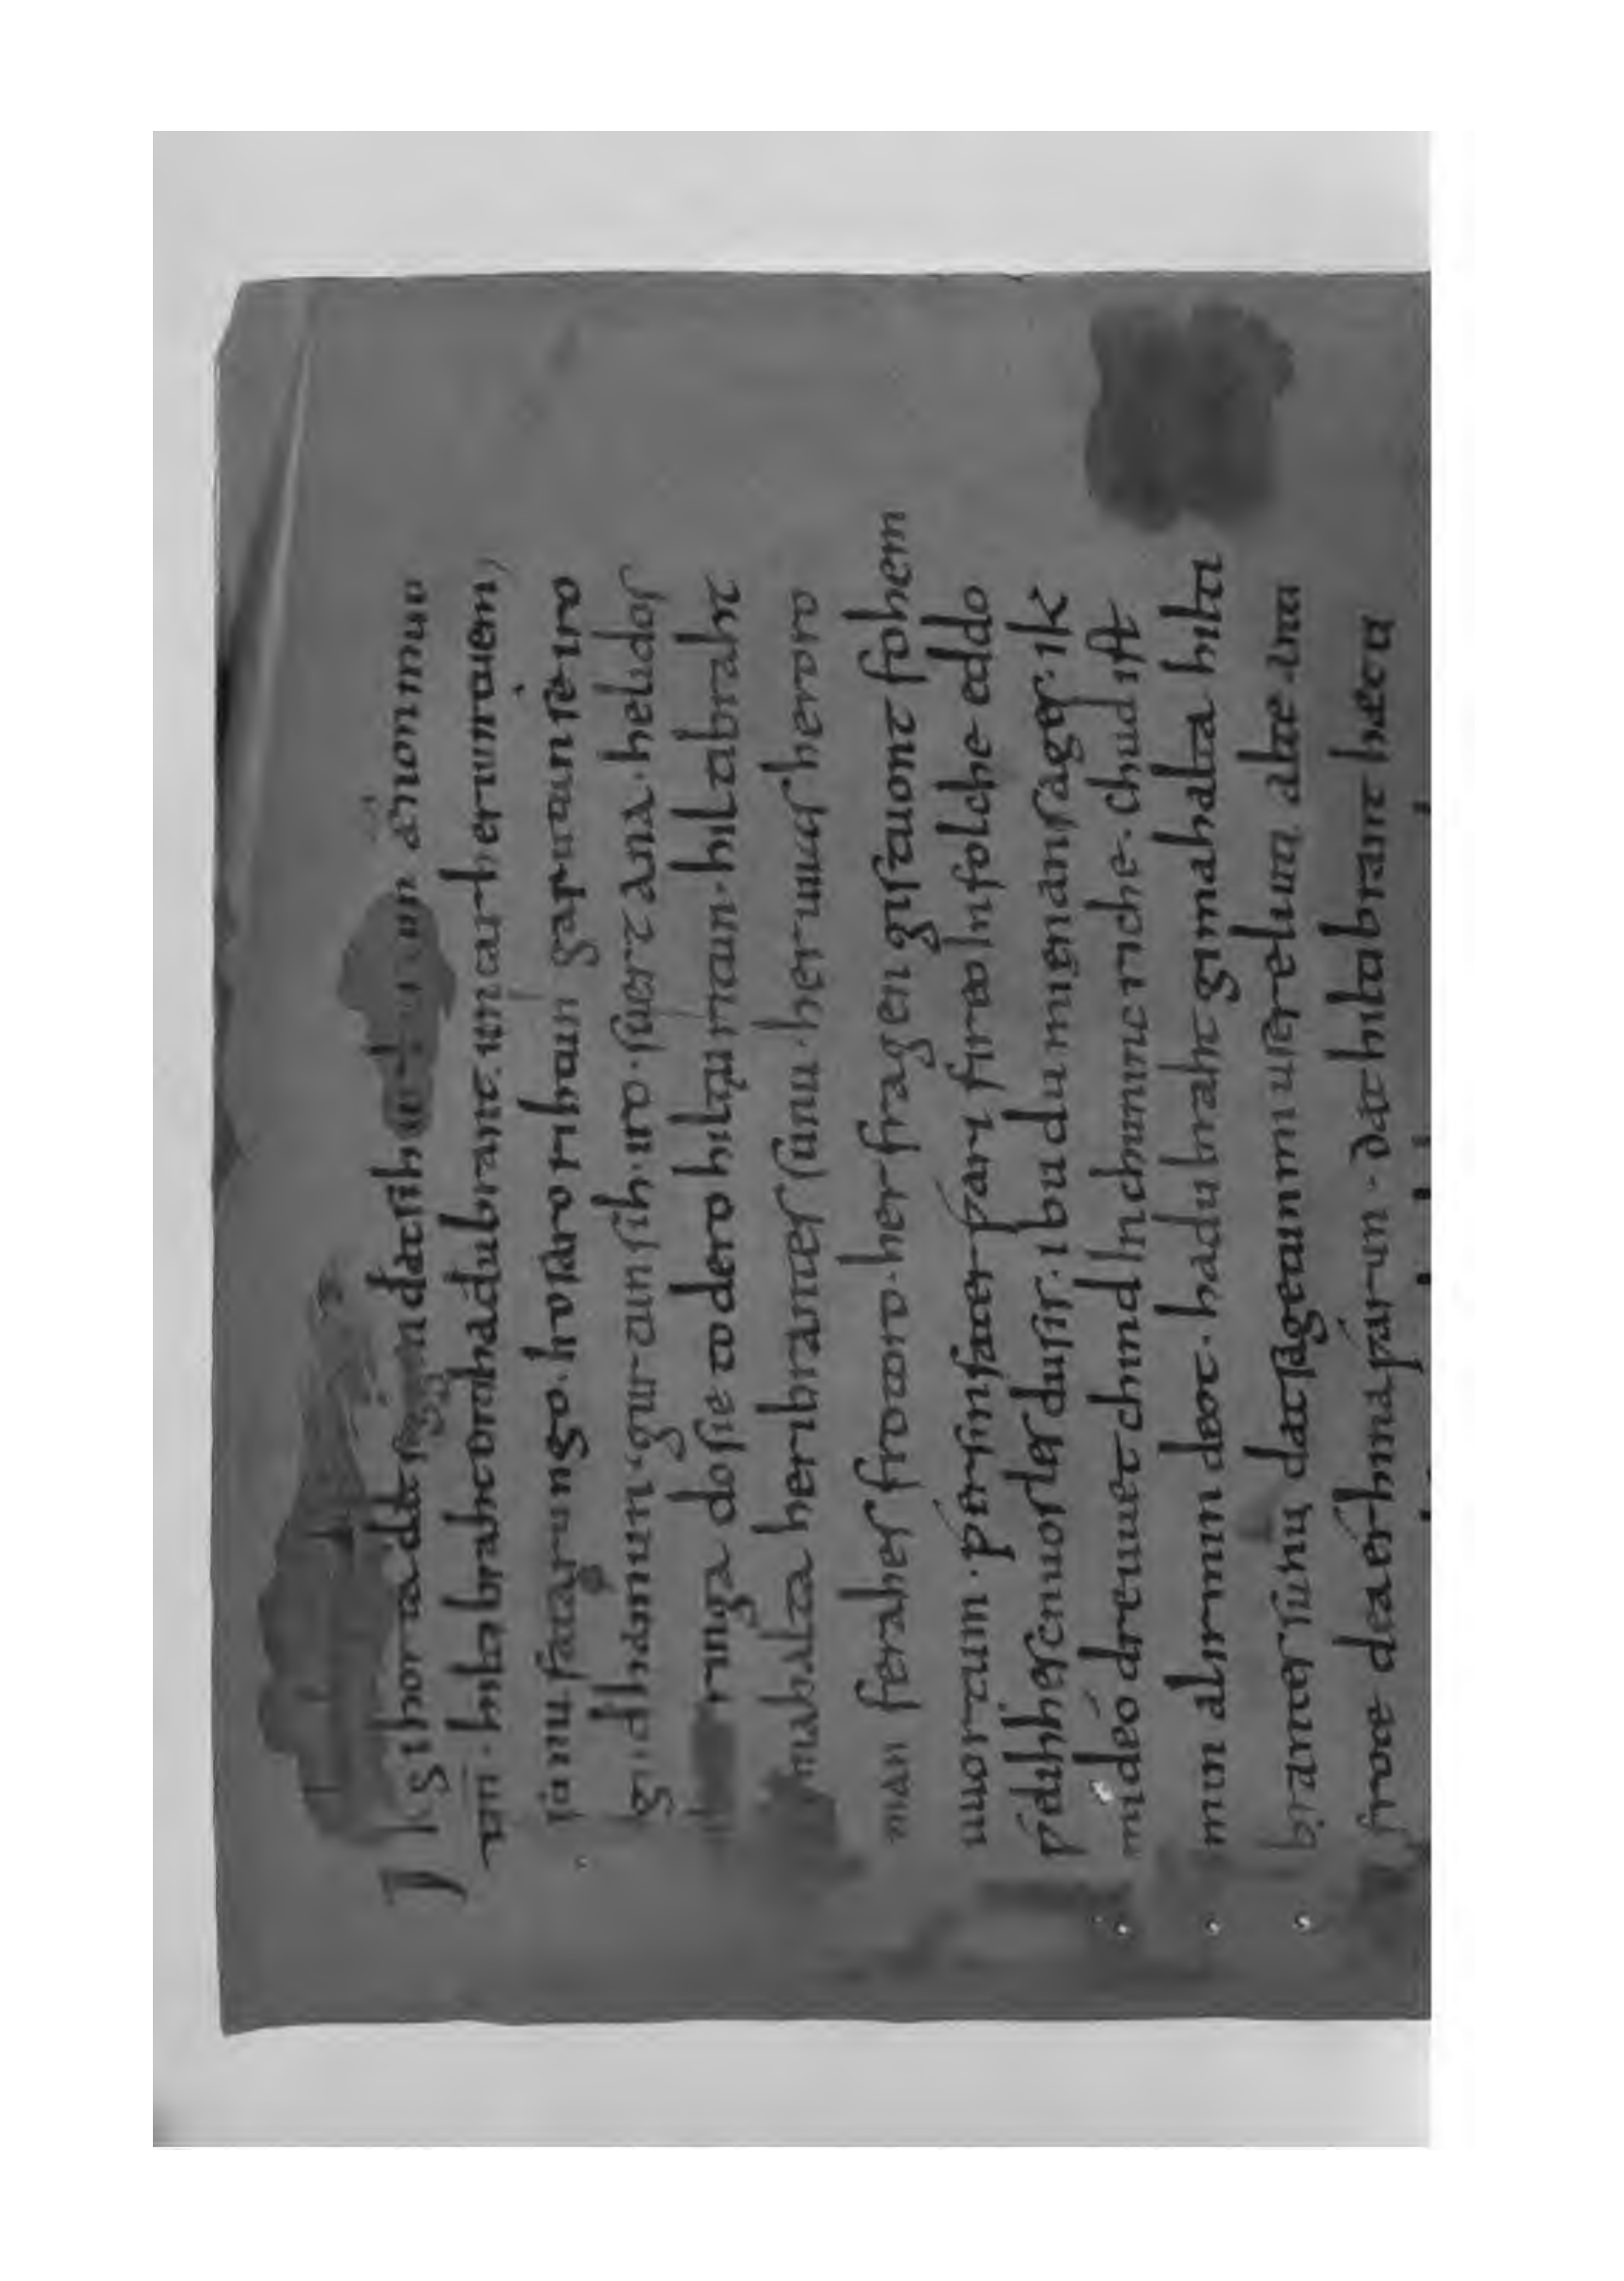 Ik gihorta dat seggen dat sih urhettun ænon muo
tin · hiltibraht enti hadubrant · untar heriun tuem,
sunu fatarungo · iro saro rihtun garutun se iro
gudhamun · gurtun sih · iro · suert ana · helidos
ringa do sie to dero hiltu ritun · hiltibraht
mahalta heribrantes sunu · her uuas heroro
man ferahes frotoro · her fragen gistuont fohem
uuortum · ƿer sin fater ƿari fireo In folche eddo
ƿelihhes cnuosles du sis · ibu du mi enan sages · ik
mi de odre uuet chind In chunincriche · chud ist
min al irmin deot · hadubraht gimahalta hilti
brantes sunu dat sagetun mi usere liuti alte anti
frote dea erhina ƿarun · dat hiltibrant hætti